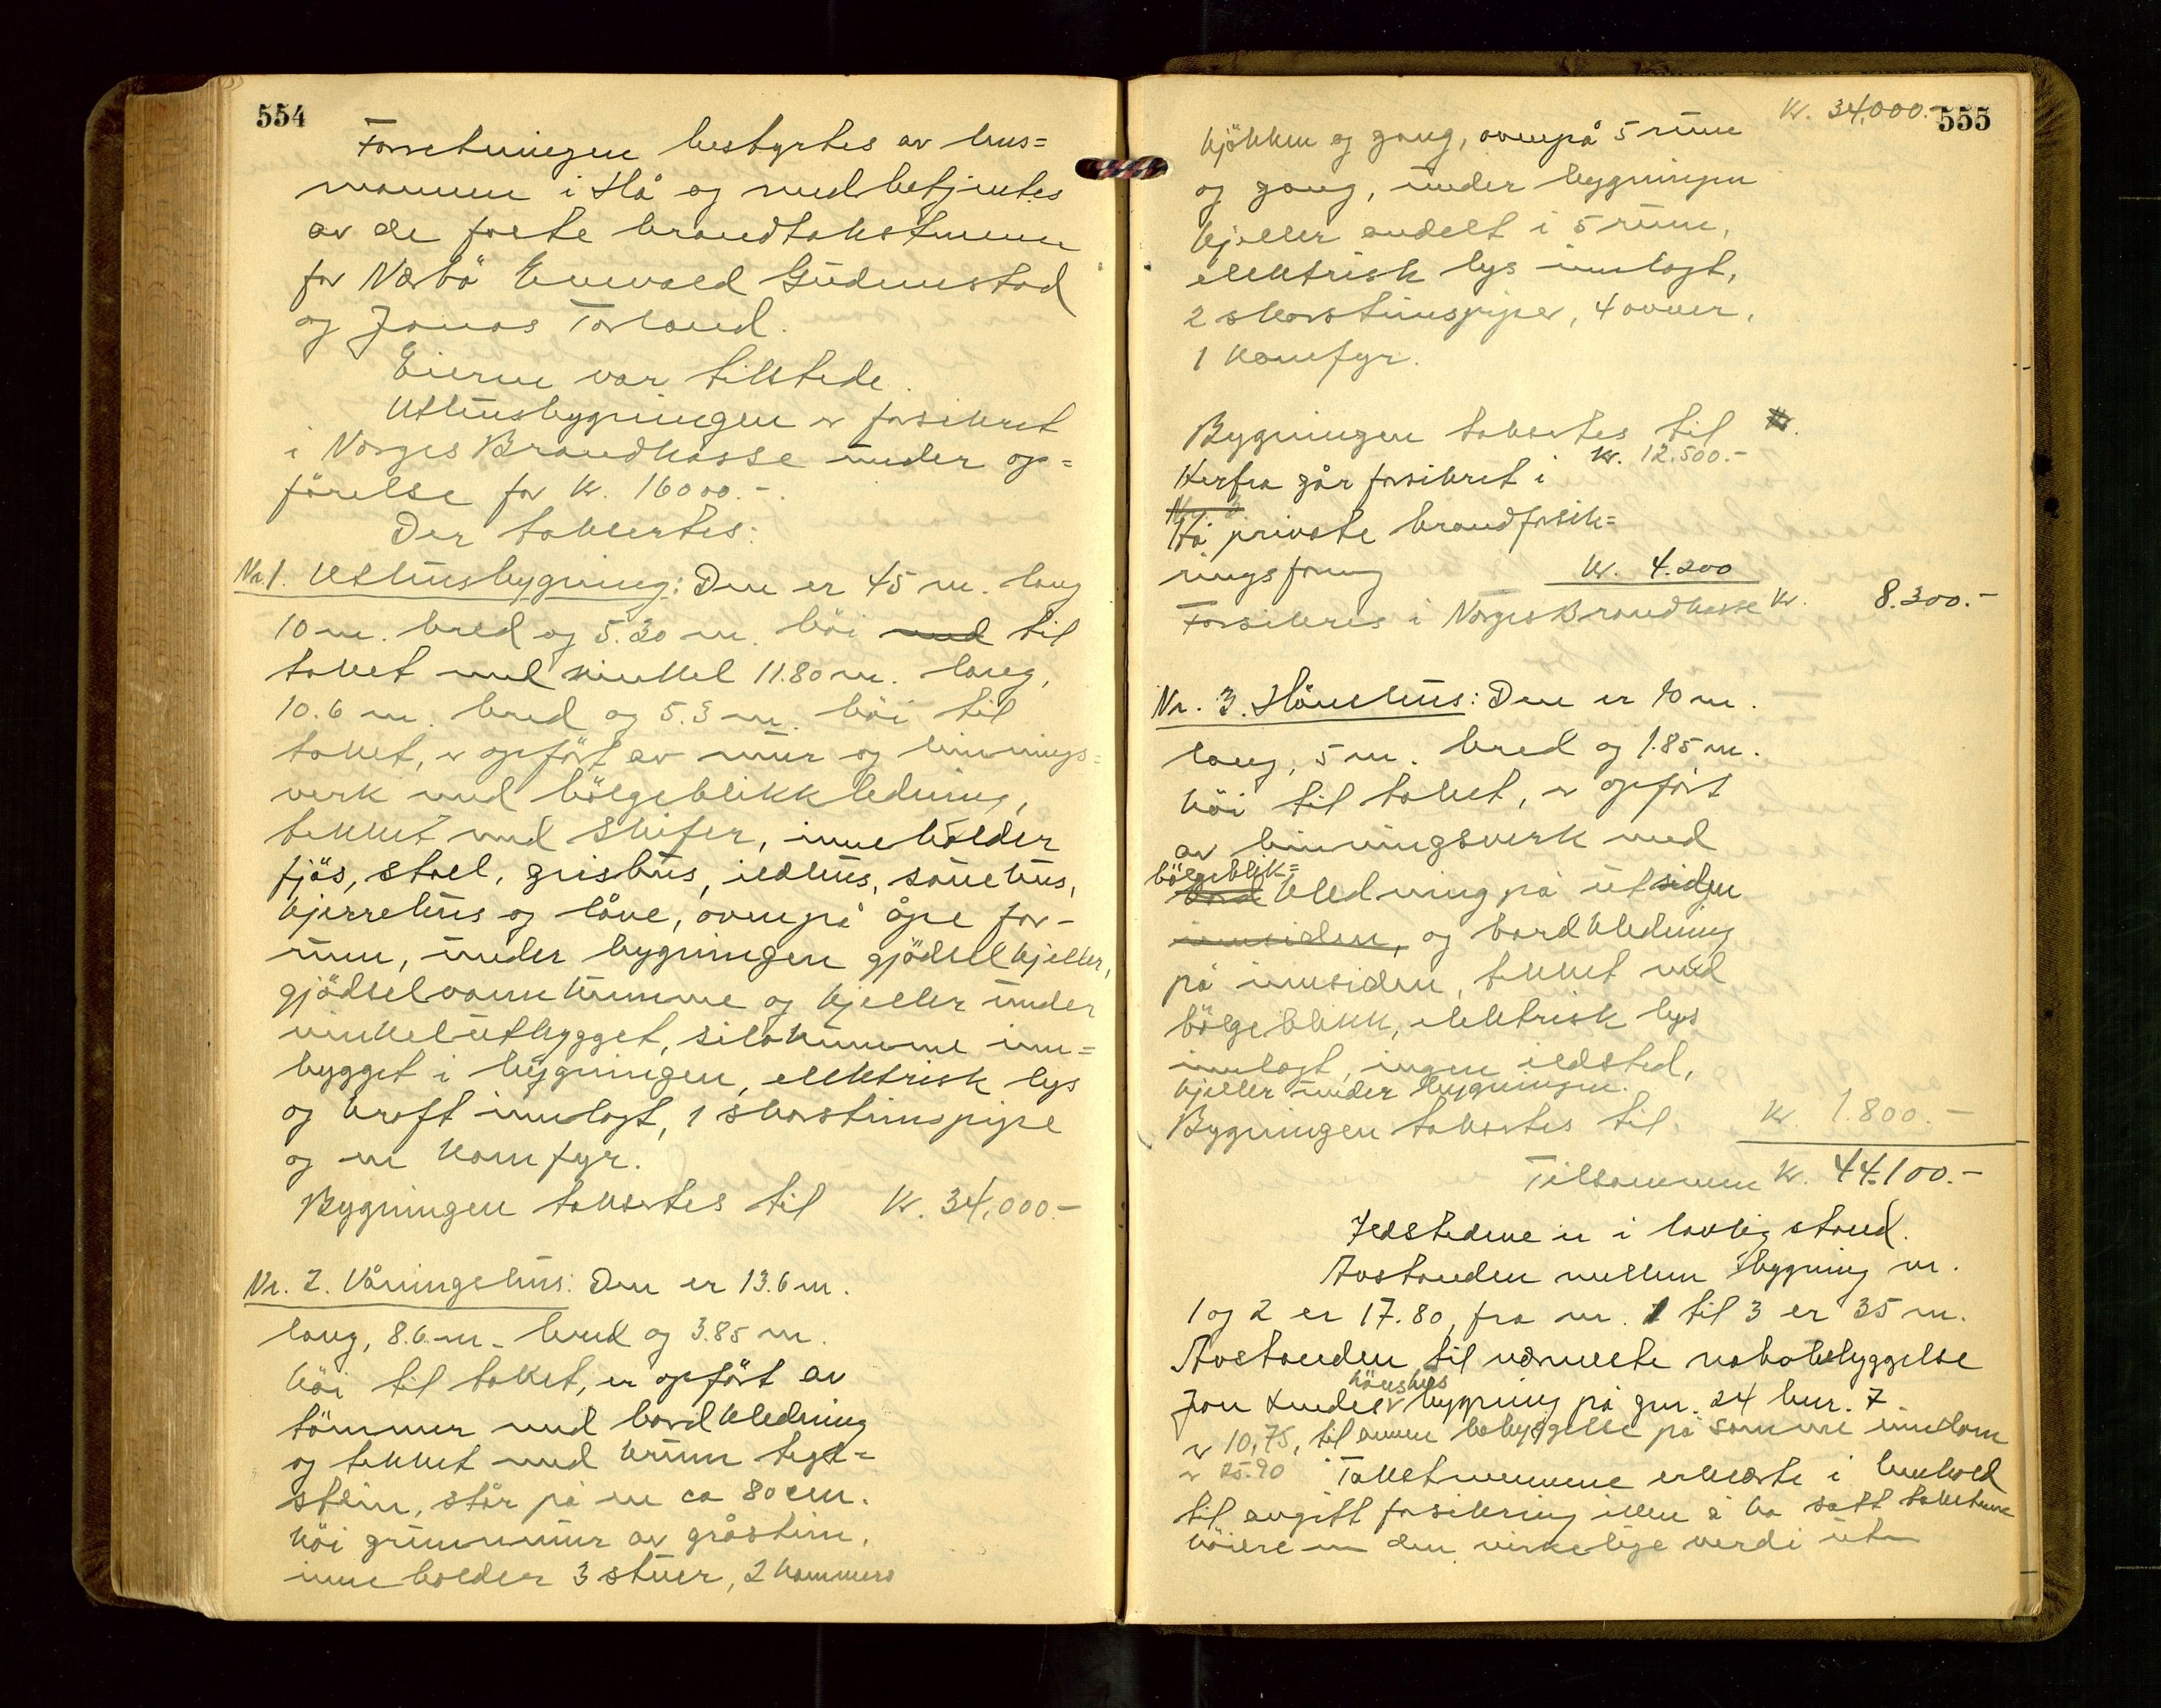 554
Forretningen bestyrtes av lens=
mannen i Hå og medbetjentes
av de faste brandtakstmenn
for Nærbö Enevald Gudmestad
og Jonas Torland.
Eieren var tilstede.
Uthusbygningen er forsikret
i Norges Brandkasse under op=
förelse for kr. 16000.-
Der takertes:
Nr. 1. Uthusbygning: Den er 45 m. lang
10 m. bred og 5.30 m. höi med til
taket med vinkkel 11.80 m. lang,
10.6 m. bred og 5.3 m. höi til
taket, er opfört av mur og binnings=
verk med bölgeblikkledning,
tekket med Skifer, inneholder
fjös, stall, grishus, ildhus, sauehus,
kjerrehus og låve, ovenpå åpe for-
rum, under bygningen gjödselkjeller,
gjödselvannkumme og kjeller under
vinkelutbygget, silokumme inn=
bygget i bygningen, elektrisk lys
og kraft innlagt, 1 skorstenspipe
og en komfyr.
Bygningen taksertes til kr. 34,000.-
Nr. 2. Våningshus: Den er 13.6 m.
lang, 8.6 m. bred og 3.85 m.
höi til taket, er opfört av
tömmer med bordkledning
og tekket med krum tegl=
stein, står på en ca 80 cm.
höi grunnmur av gråstein,
inneholder 3 stuer, 2 kammers
555
kr. 34,000.-
kjökken og gang, ovenpå 5 rum
og gang, under bygningen
kjeller avdelt i 5 rum,
elektrisk lys innlagt,
2 skorstenspiper, 4 ovner,
1 komfyr.
Bygningen taksertes til kr.
kr. 12.500.-
Herfra går forsikret i
Hå private brandforsik=
ringsforening kr. 4.200
Forsikres i Norges Brandkasse kr. 8.300.-
Nr. 3. Hönehus: Den er 10 m.
lang, 5 m. bred og 1.85 m.
höi til taket, er opfört
av binningsverk med
bölgeblik=
bord kledning på utsiden
innsiden, og bordkledning
på innsiden, tekket med
bölgeblikk, elektrisk lys
innlagt, ingen ildsted,
kjeller under bygningen.
Bygningen taksertes til kr. 1.800.-
Tilsammen kr. 44.100.-
Ildstedene er i lovlig stand.
Avstanden mellem bygning nr.
1 og 2 er 17.80, fra nr. 1 til 3 er 35 m.
Avstanden til nærmeste nabobebyggelse
hönshus
Jon Lindes bygning på gnr. 24 bnr. 7
er 10,75, til annen bebyggelse på samme eiendom
er 25.90 Takstmennene erklærte i henhold
til avgitt forsikring ikke å ha satt takstene
höiere enn den virkelige verdi uten